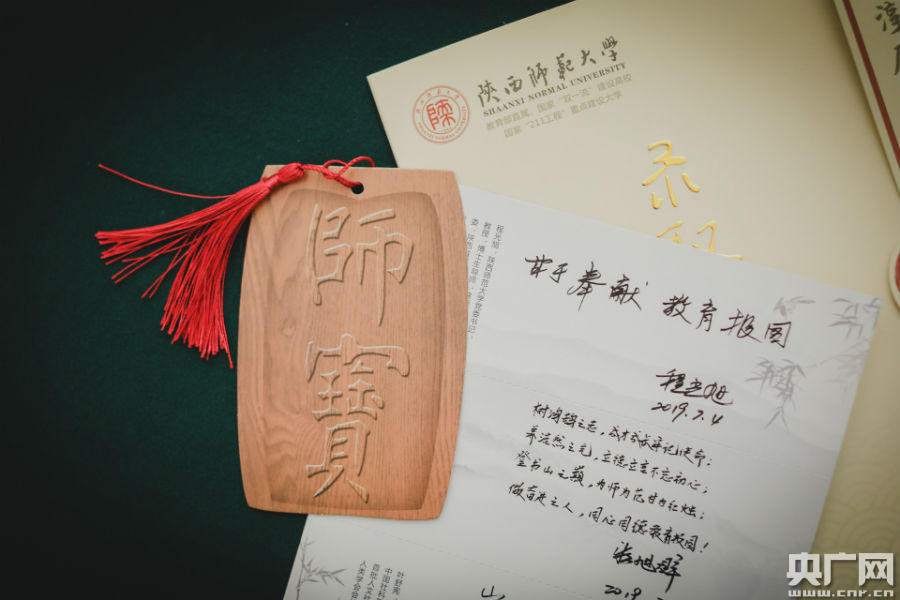 陝西师范大学
SHAANXI NORMAL UNIVERSITY
教育部直属、国家“双一流”建设高校
国家“211工程”重点建设大学
師
寶
程光旭，陕西师范大学党委书记，
教授，博士生导师，
甘于奉献 教育报国
程光旭
2019.7.4
树鸿鹄之志，成才成长牢记使命；
养浩然之气，立德立言不忘初心；
登书山之巅，为师为范甘为红烛；
做奋进之人，同心同德教育报国！
2019.
央广网
www.cnr.cn